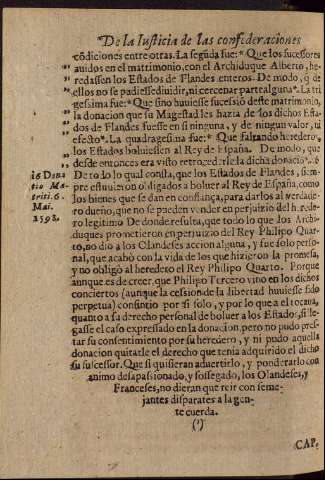 De la Iusticia de las confideraciones
cõdiciones entre otras. La segũda fue: * Que los sucessores
auidos en el matrimonio, con el Archiduque Alberto, he-
redassen los Estados de Flandes enteros. De modo, q̃ de
ellos no se pudiesse diuidir, ni cercenar parte alguna *. La tri
gesima fue: * Que sino huuiesse sucessiõ deste matrimonio,
la donacion que su Magestad les hazia de los dichos Esta-
dos de Flandes fuesse en si ninguna, y de ningun valor, ni
efecto *. La quadragesima fue: * Que faltando heredero,
los Estados boluiessen al Rey de España. De modo, que
desde entonces era visto retrocederle la dicha donaciõ *.
16 Dona
tio Ma-
triti. 6.
Mai.
1598.
De todo lo qual consta, que los Estados de Flandes, siem-
pre estuuieron obligados a boluer al Rey de España, como
los bienes que se dan en confiança, para darlos al verdade-
ro dueño, que no se pueden vender en perjuizio del herede-
ro legitimo. De donde resulta, que todo lo que los Archi-
duques prometieron en perjuizio del Rey Philipo Quar-
to, no dio a los Olandeses accion alguna, y fue solo perso-
nal, que acabò con la vida de los que hizieron la promesa,
y no obligò al heredero el Rey Philipo Quarto. Porque
aunque es de creer, que Philipo Tercero vino en los dichos
conciertos (aunque la cession de la libertad huuiesse sido
perpetua) consintio por si solo, y por lo que a el tocaua,
quanto a su derecho personal de boluer a los Estados, si lle-
gasse el caso expressado en la donacion, pero no pudo pres-
tar su consentimiento por su heredero, y ni pudo aquella
donacion quitarle el derecho que tenia adquirido el dicho
su sucessor. Que si quisieran aduertirlo, y ponderarlo con
animo desapasionado, y sossegado, los Olandeses, y
Franceses, no dieran que reir con seme-
jantes disparates a la gen-
te cuerda.
(?)
CAP.